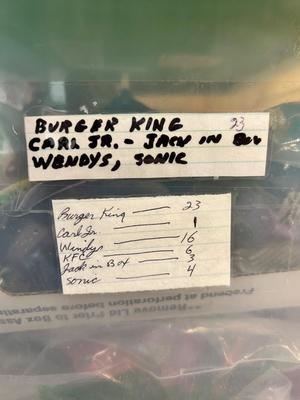 BURGER KING 23
CARL JR. - JACK IN BOX
WENDYS, SONIC
Burger King — 23
Carl Jr. — 1
Wendys — 16
KFC — 6
Jack in Box — 3
Sonic — 4
Prebend at perforation before separatin
**Remove Lid Prior to Box Ass